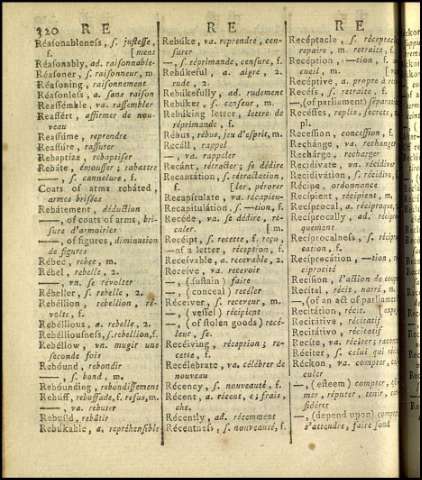 320 R E
R E
R E
Réasonableness, s. justesse,
f. [ment
Réasonably, ad. raisonnable-
Réasoner, s. raisonneur, m.
Réasoning, raisonnement
Réasonless, a. sans raison
Reassémble, va. rassembler
Reassért, affirmer de nou-
veau
Reassúme, reprendre
Reassúre, rassurer
Rebaptíze, rebaptiser
Rebáte, émousser; rabattre
—, s. cannelure, f.
Coats of arms rebáted,
armes brisées
Rebátement, déduction
—, of coats of arms, bri-
sure d'armoiries
—, of figures, diminution
de figures
Rébec, rebec, m.
Rébel, rebelle, 2.
—, vn. se révolter
Rebéller, s. rebelle, 2.
Rebéllion, rebellion, ré-
volte, f.
Rebéllious, a. rebelle, 2.
Rebélliousness, s. rebellion, f.
Rebéllow, vn. mugir une
seconde fois
Rebóund, rebondir
—, s. bond, m.
Rebóunding, rebondissement
Rebúff, rebuffade, f. refus, m.
—, va. rebuter
Rebuíld, rebâtir
Rebúkable, a. repréhensible
Rebúke, va. reprendre, cen-
surer
—, s. réprimande, censure, f.
Rebúkeful, a. aigre, 2.
rude
Rebúkefully, ad. rudement
Rebúker, s. censeur, m.
Rebúking letter, lettre de
réprimande, f.
Rébus, rébus, jeu d'esprit, m.
Recáll, rappel
—, va. rappeler
Recánt, rétracter; se dédire
Recantátion, s. rétractation,
f. [ler, pérorer
Recapítulate, va. récapitu-
Recapitulátion, s. —tion, f.
Recéde, va. se dédire, re-
culer [m.
Recéipt, s. recette, f. reçu,
—of a letter, réception, f.
Recéivable, a. recevable, 2.
Receive, va. recevoir
—, (sustain) faire
—, (conceal) recéler
Recéiver, s. receveur, m.
—, (vessel) récipient
—, (of stolen goods) recé-
leur, se.
Recéiving, réception; re-
cette, f.
Recélebrate, va. célébrer de
nouveau
Récency, s. nouveauté, f.
Récent, a. récent, e; frais,
che.
Récently, ad. récemment
Récentness, s. nouveauté, f.
Récéptacle, s. réceptacle,
repaire, m. retraite, f.
Recéption, —tion, f.
cueil, m.
Recéptive, a. propre à
Recéss, s. retraite, f.
—, (of parliament)
Recésses, replis, secrets,
pl.
Recession, concession, f.
Rechánge, va. rechanger
Rechárge, recharger
Recidivate, vn.
Recidivátion, s.
Récipe, ordonnance
Recípient, récipient, m.
Recíprocal, a. réciproque
Recíprocally, ad. récipro-
quement
Recíprocalness, s.
cation, f.
Reciprocátion, —tion,
ciprocité
Recísion, l'action de
Recítal, récit, narré, m.
—, (of an act of parliament)
Recitátion, récit,
Récitative, récitatif
Récitátivo, récitatif
Recíte, va. réciter;
Recíter, s. celui qui
Réckon, va. compter,
culer
—, (esteem) compter,
mer, réputer, tenir,
sidérer
—, (depend upon) compter,
s'attendre, faire fond